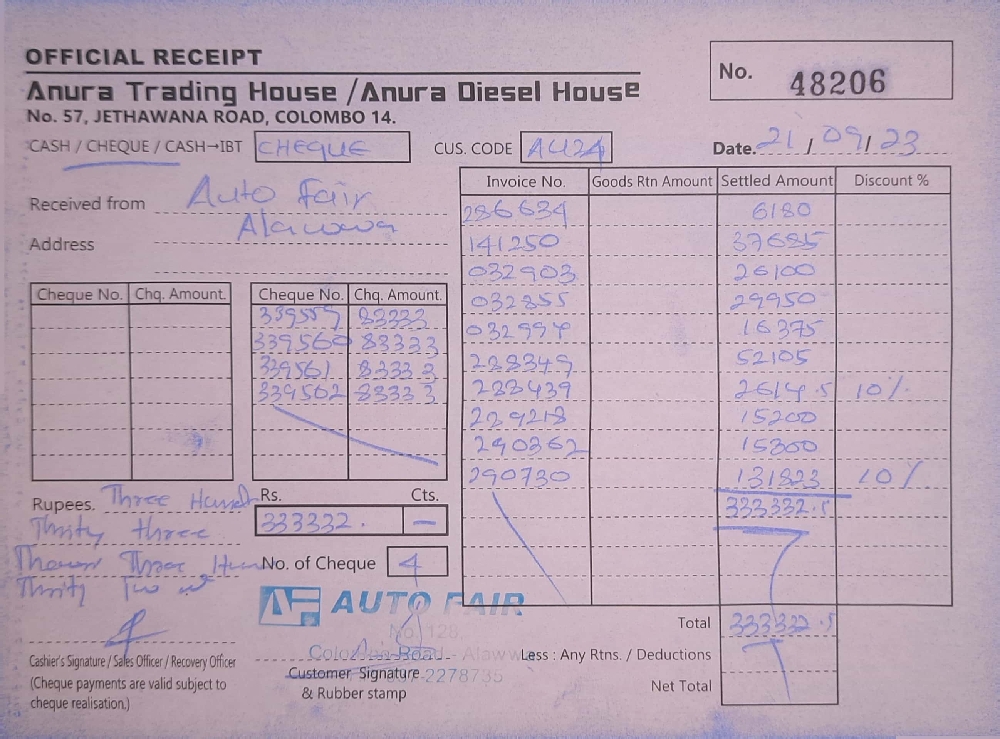 OFFICIAL RECEIPT
No. 48206
Anura Trading House / Anura Diesel House
No. 57, JETHAWANA ROAD, COLOMBO 14.
CASH / CHEQUE / CASH→IBT CHEQUE CUS. CODE AU24 Date. 21 / 09 / 23
Received from Auto Fair
Address Alawwa
Invoice No. Goods Rtn Amount Settled Amount Discount %
286634 6180
141250 37685
032903 26100
032855 29950
032994 16375
288349 52105
233439 2614.5 10%
289218 15200
290362 15300
290730 131823 10%
333332.5
Cheque No. Chq. Amount. Cheque No. Chq. Amount.
339559 83333
339560 83333
339561 83333
339562 83333
Rupees. Three Hund
Thrity three
Three Hun
Thrity Two
Rs. Cts.
333332. —
No. of Cheque 4
AF AUTO FAIR
No. 128,
Colombo Road - Alawwa
2278735
Total 333332.5
Less : Any Rtns. / Deductions
Net Total
Cashier's Signature / Sales Officer / Recovery Officer
(Cheque payments are valid subject to
cheque realisation.)
Customer Signature
& Rubber stamp